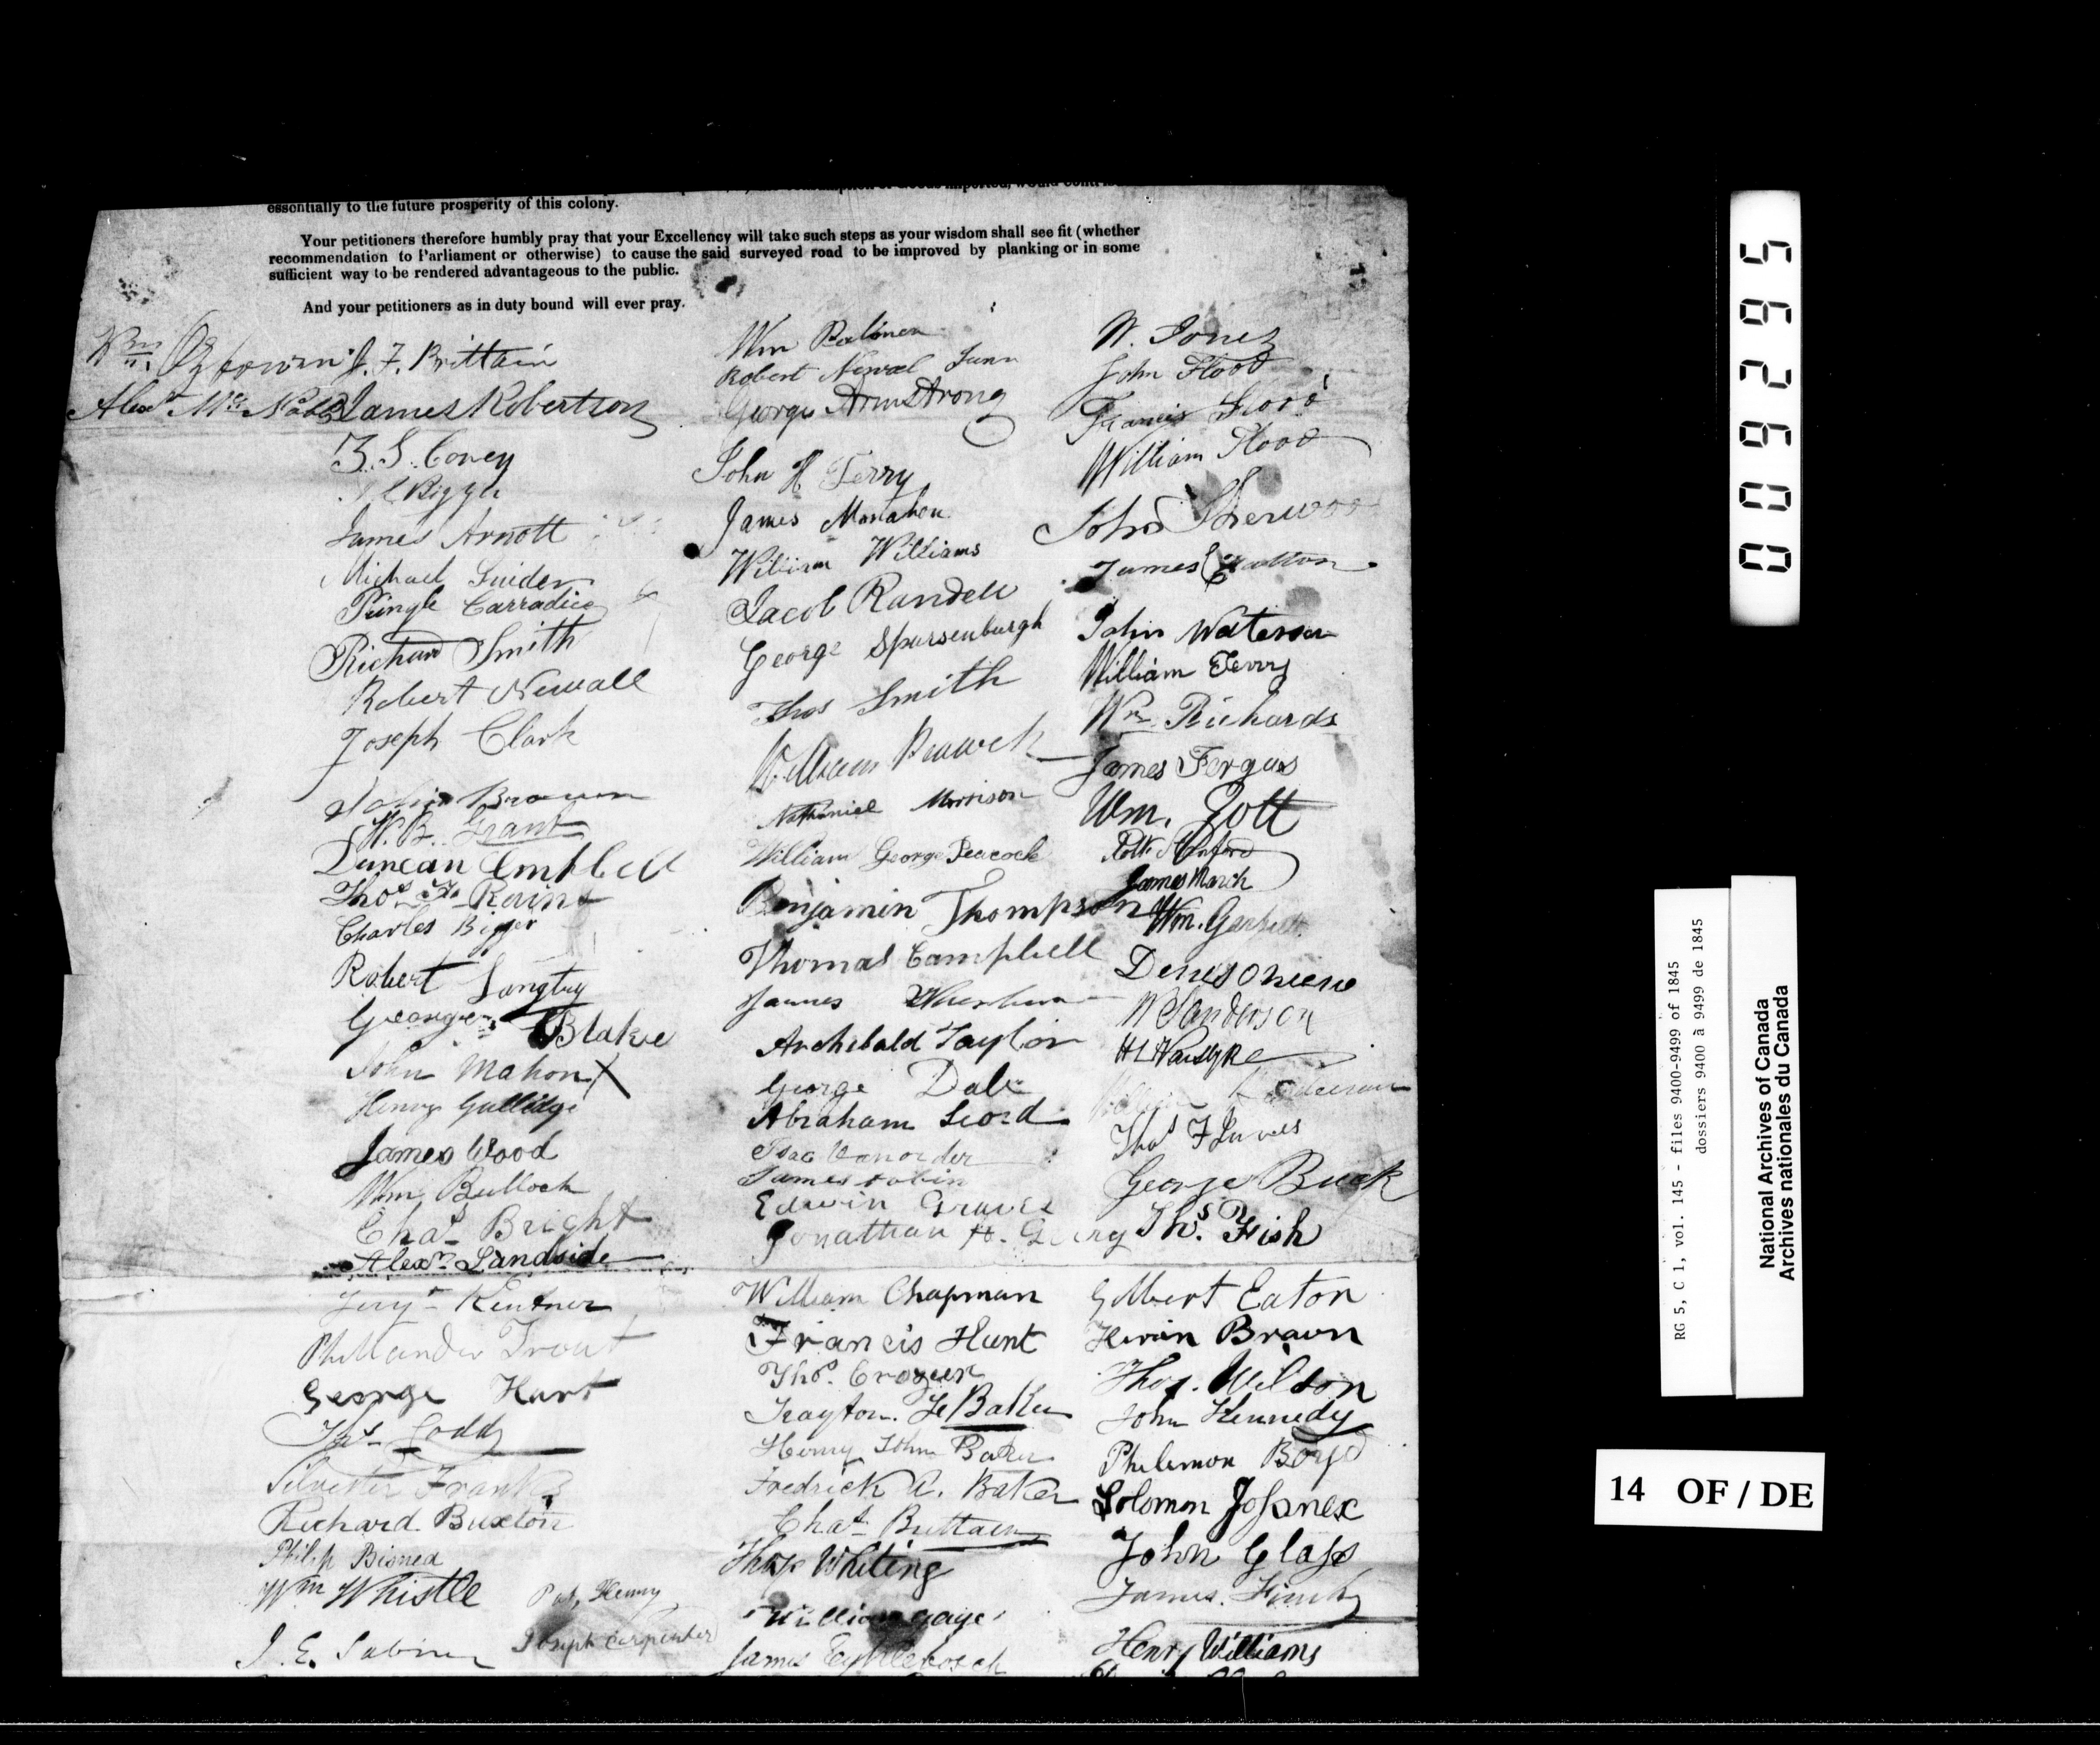 essentially to the future prosperity of this colony.
Your petitioners therefore humbly pray that your Excellency will take such steps as your wisdom shall see fit (whether
recommendation to Parliament or otherwise) to cause the said surveyed road to be improved by planking or in some
sufficient way to be rendered advantageous to the public.
And your petitioners as in duty bound will ever pray.
Wm
Alexr McNabb
J. F. Brittain
James Robertson
T. S. Corey
James Arnott
Michael Snider
Pringle Carradice
Richard Smith
Robert Newall
Joseph Clark
John Brown
W. B. Grant
Duncan Cmpbell
Thos Rains
Charles Bigger
Robert Langtry
George Blake
John Mahon X
Henry Gullidge
James Wood
Wm Bullock
Chas Bright
Alexr Landside
Kentner
Philander Trout
George Hart
Thos Coddy
Silvester Franks
Richard Buxton
Philip Bisnea
Wm Whistle
Pat, Henny
J. E. Sabine
Joseph Carpenter
Wm Palmer
Robert Newal Junr
George Armstrong
John H Terry
James Monahen
William Williams
Jacob Randell
George Sparsenburgh
Thos Smith
William
Nathaniel Morrison
William George Peacock
Benjamin Thompson
Thomas Campbell
James
Archebald Taylor
George Dale
Abraham Leord
Isac Vanorder
James tobin
Edwin Graves
Jonathan H. Gerry
William Chapman
Francis Hunt
Thos. Crozier
Trayton. Le Baker
Henry John Baker
Fredrick A. Baker
Chas Brittain
Thos Whiting
William gage
James Eyklebosch
W. Jones
John Flood
Francis Flood
William Flood
John Sherwood
James
John Waterson
William Terry
Wm Richards
James Fergus
Wm. Zott
James March
Wm.
Denis Oniene
W Sanderson
H L Vansyke
William
Thos F
George Buck
Ths. Fish
Gilbert Eaton
Hiram Brown
Thos. Wilson
John Kennedy
Philemon Boyd
Solomon
John Glass
James. Finch
Henry Williams
009295
RG 5, C 1, vol. 145 - files 9400-9499 of 1845
dossiers 9400 à 9499 de 1845
National Archives of Canada
Archives nationales du Canada
14 OF / DE